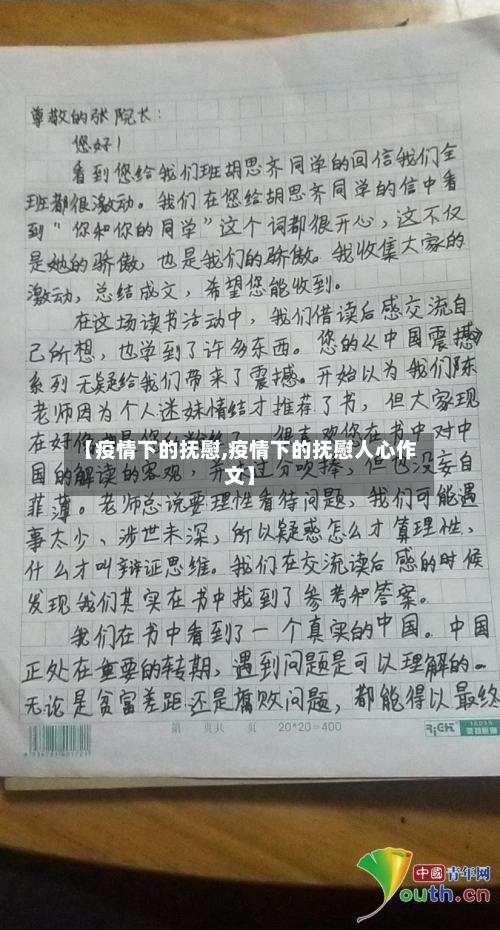 尊敬的张院长：
您好！
看到您给我们班胡思齐同学的回信我们全
班都很激动。我们在您给胡思齐同学的信中看
到“你和你的同学”这个词都很开心，这不仅
是她的骄傲，也是我们的骄傲。我收集大家的
激动，总结成文，希望您能收到。
在这场读书活动中，我们借读后感交流自
己所想，也学到了许多东西。您的《中国震撼》
系列无疑给我们带来了震撼。开始以为我们陈
老师因为个人迷妹情结才推荐了书，但大家现
在好
欢您在书中对中
【疫情下的抚慰,疫情下的抚慰人心作
文】
国的解读的客观，并
过分吹捧，但也没妄自
菲薄。老师总说要理性看待问题，我们可能遇
事太少、涉世未深，所以疑惑怎么才算理性、
什么才叫辩证思维。我们在交流读后感的时候
发现我们其实在书中找到了参考和答案。
我们在书中看到了一个真实的中国。中国
正处在重要的转期，遇到问题是可以理解的。
无论是贫富差距还是腐败问题，都能得以最终
第 页共 页 20*20=400
中國青年网
youth.cn